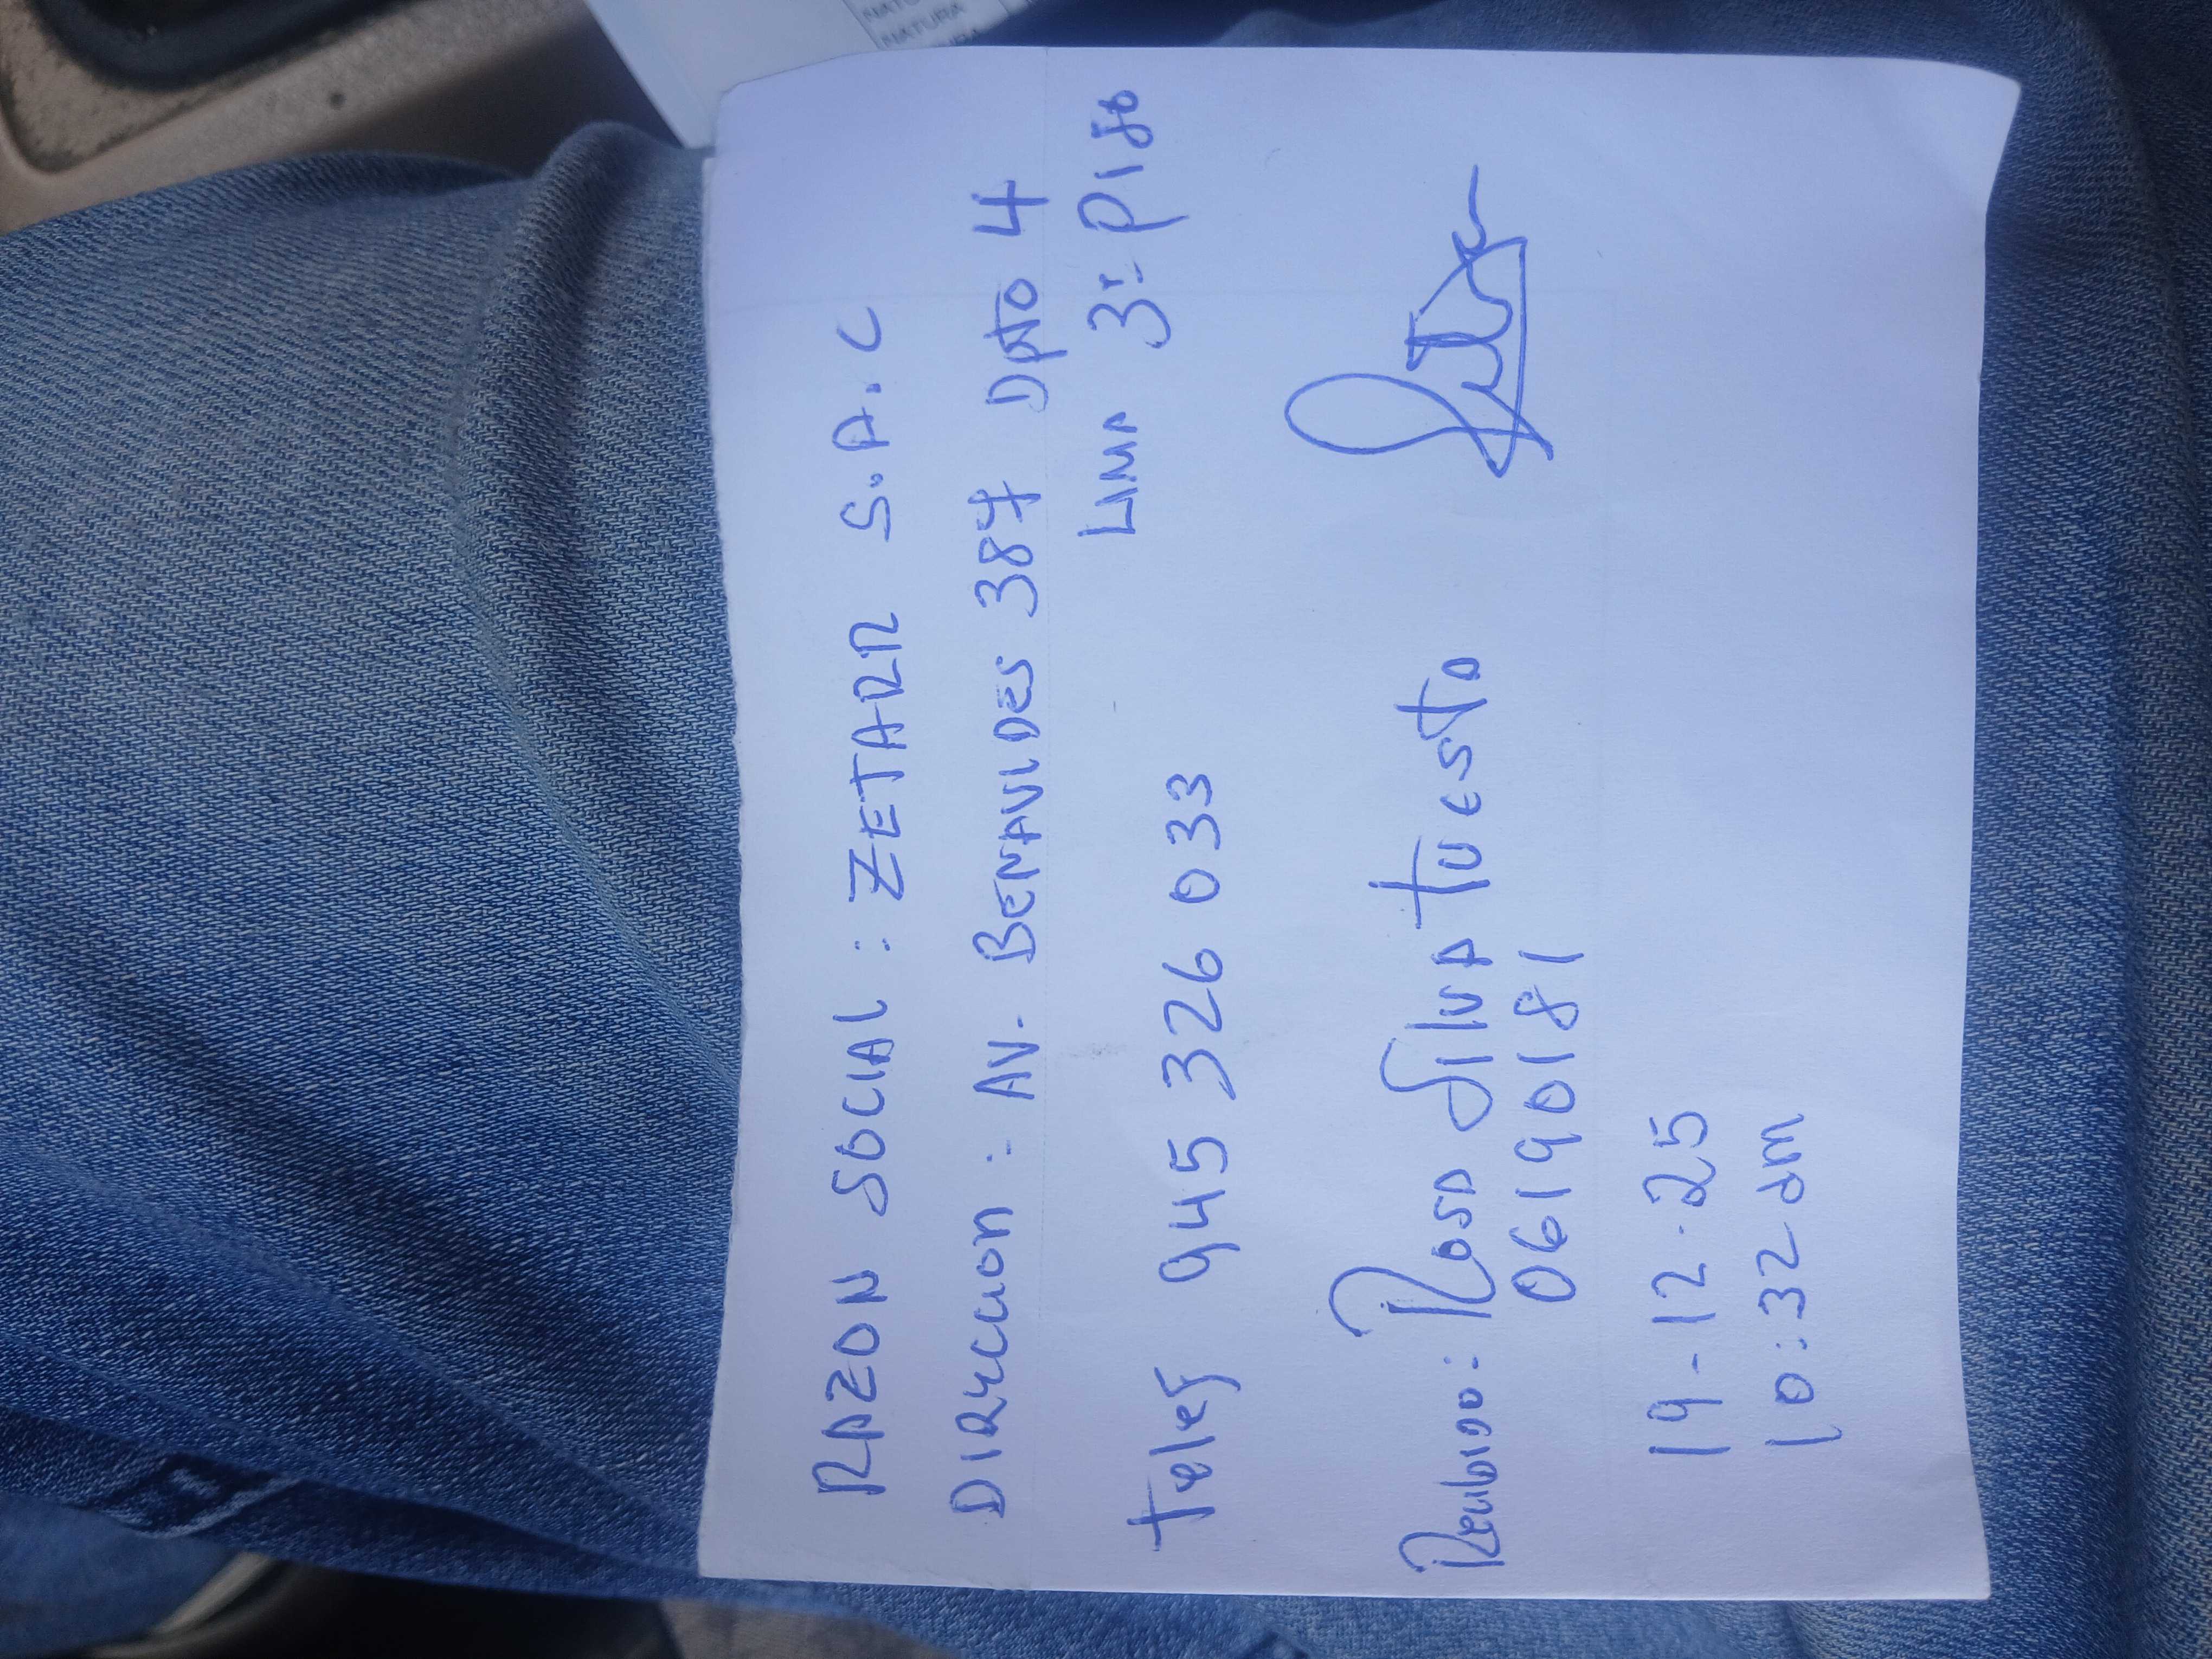 RAZON SOCIAL : ZETARR S.A.C
DIRECCION : AV. BENAVIDES 387 Dpto 4
LIMA 3º PISO
Telef 945 326 033
Recibido: Rosa Silva Tuesta
06190181
19-12-25
10:32 am
NATURA